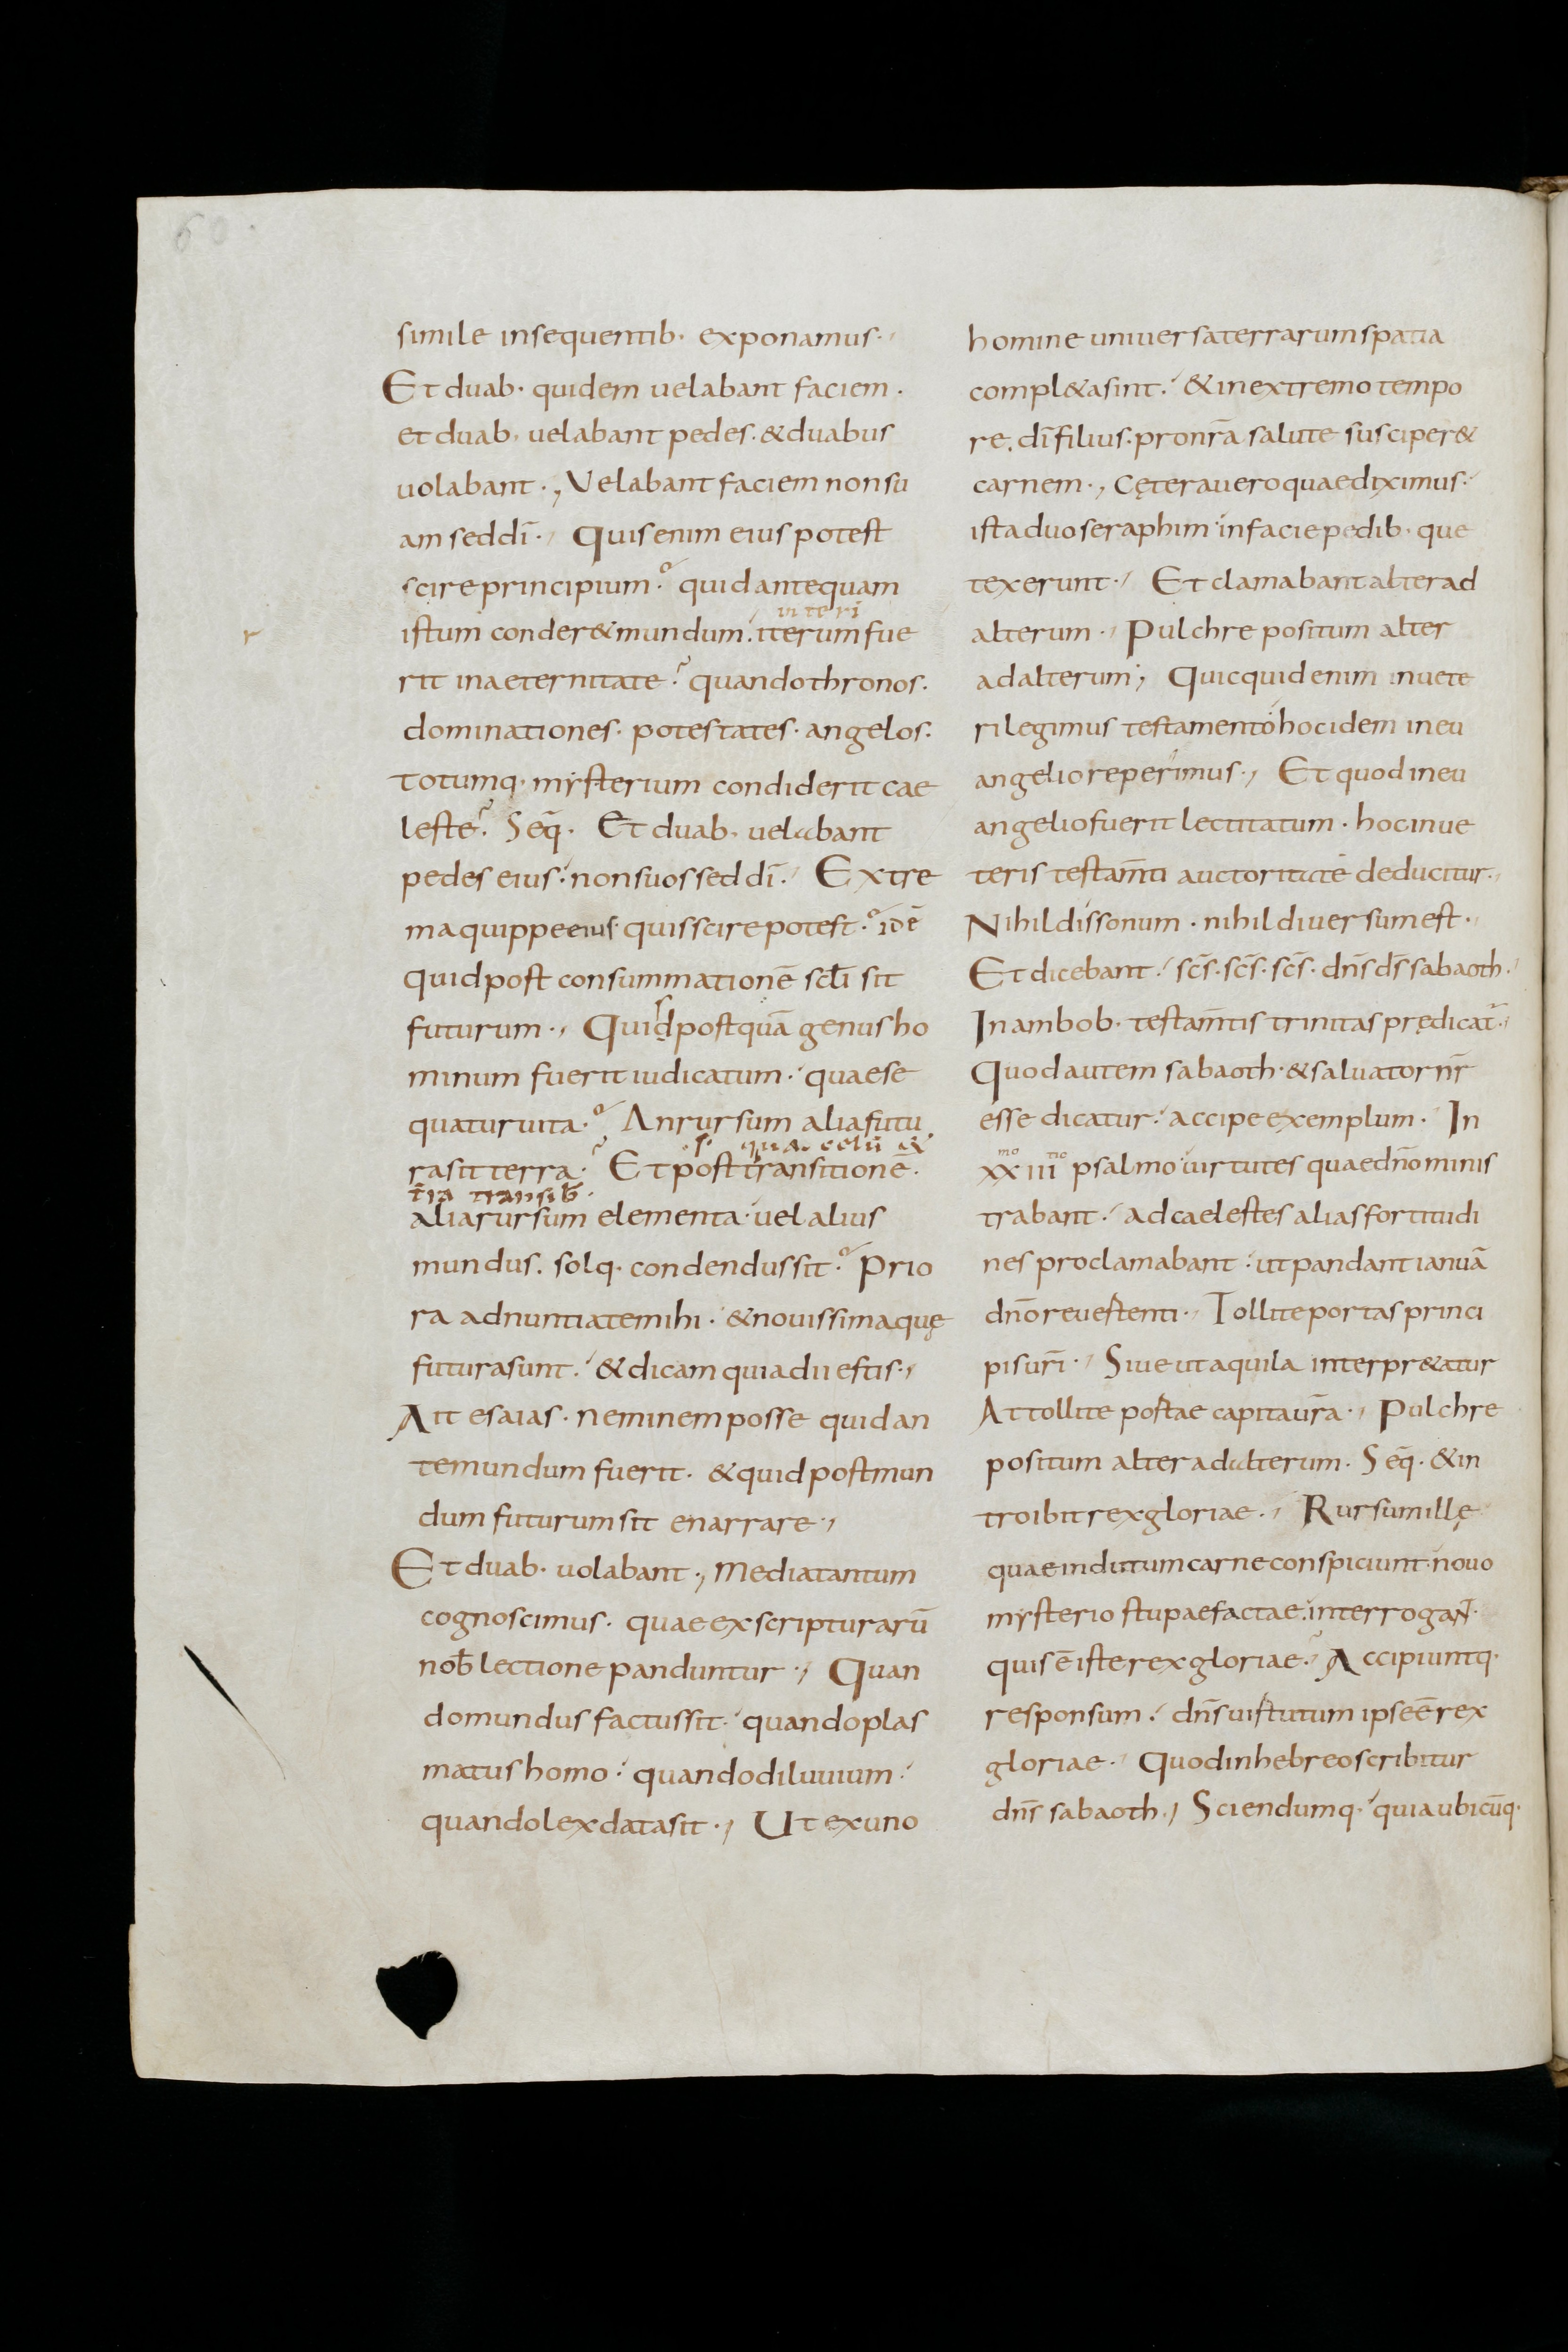 60.
simile insequentib· exponamus·,
Et duab· quidem uelabant faciem·
et duab· uelabant pedes·&duabus
uolabant·, Uelabant faciem non su
am sed dī·, Quis enim eius potest
scire principium·? quid antequam
in terī
istum conder& mundum· iterum fue
r
rit in aeternitate? quando thronos·
dominationes· potestates· angelos·
totumq· mẏsterium condiderit cae
leste? Seq̄· Et duab· uelabant
pedes eius· non suos sed dī· Extre
ma quippe eius quis scire potest·? idē
quid post consummationē sc̄li sit
s
futurum·, Quid postquā genus ho
minum fuerit iudicatum· quae se
quatur uita·? An rursum alia futu
·s· qua celū &
ra sit terra·? Et post transitionē·
t̄ra transib̄·
alia rursum elementa· uel alius
mundus· solq· condendus sit·? Prio
ra adnuntiate mihi· & nouissima quę
futura sunt· & dicam quia dii estis·,
Ait esaias· neminem posse quid an
te mundum fuerit· & quid post mun
dum futurum sit enarrare·,
Et duab· uolabant·, Media tantum
cognoscimus· quae ex scripturarū
nob̄ lectione panduntur·, Quan
do mundus factus sit· quando plas
matus homo· quando diluuium·
quando lex data sit·, Ut ex uno
homine uniuersa terrarum spatia
compl&a sint· & in extremo tempo
re· dī filius· pro nr̄a salute susciper&
carnem·, Cętera uero quae diximus·
ista duo seraphim· in facie pedib· que
texerunt·, Et clamabant alter ad
alterum·, Pulchre positum alter
ad alterum; Quicquid enim in uete
ri legimus testamento hoc idem in eu
angelio reperimus·, Et quod in eu
angelio fuerit lectitatum· hoc in ue
teris testam̄ti auctoritate deducitur·,
Nihil dissonum· nihil diuersum est·,
Et dicebant· sc̄s· sc̄s· sc̄s· dn̄s ds̄ sabaoth·
In ambob· testam̄tis trinitas prędicat̄·,
Quod autem sabaoth· & saluator nr̄
esse dicatur· accipe exemplum· In
mo tio
xxiii psalmo uirtutes quae dn̄o minis
trabant· ad caelestes alias fortitudi
nes proclamabant· ut pandant ianuā
dn̄o reuestenti·, Tollite portas princi
pis ur̄i·, Siue ut aquila interpr&atur
Attollite postae capita ur̄a·, Pulchre
positum alter ad alterum· Seq̄· & in
troibit rex gloriae·, Rursum illę
quae indutum carne conspiciunt· nouo
mẏsterio stupaefactae· interrogaNT·
quis ē iste rex gloriae·? Accipiuntq·
responsum· dn̄s uistutum ipse ē rex
gloriae·, Quod in hebreo scribitur
dn̄s sabaoth·, Sciendumq· quia ubicūq·